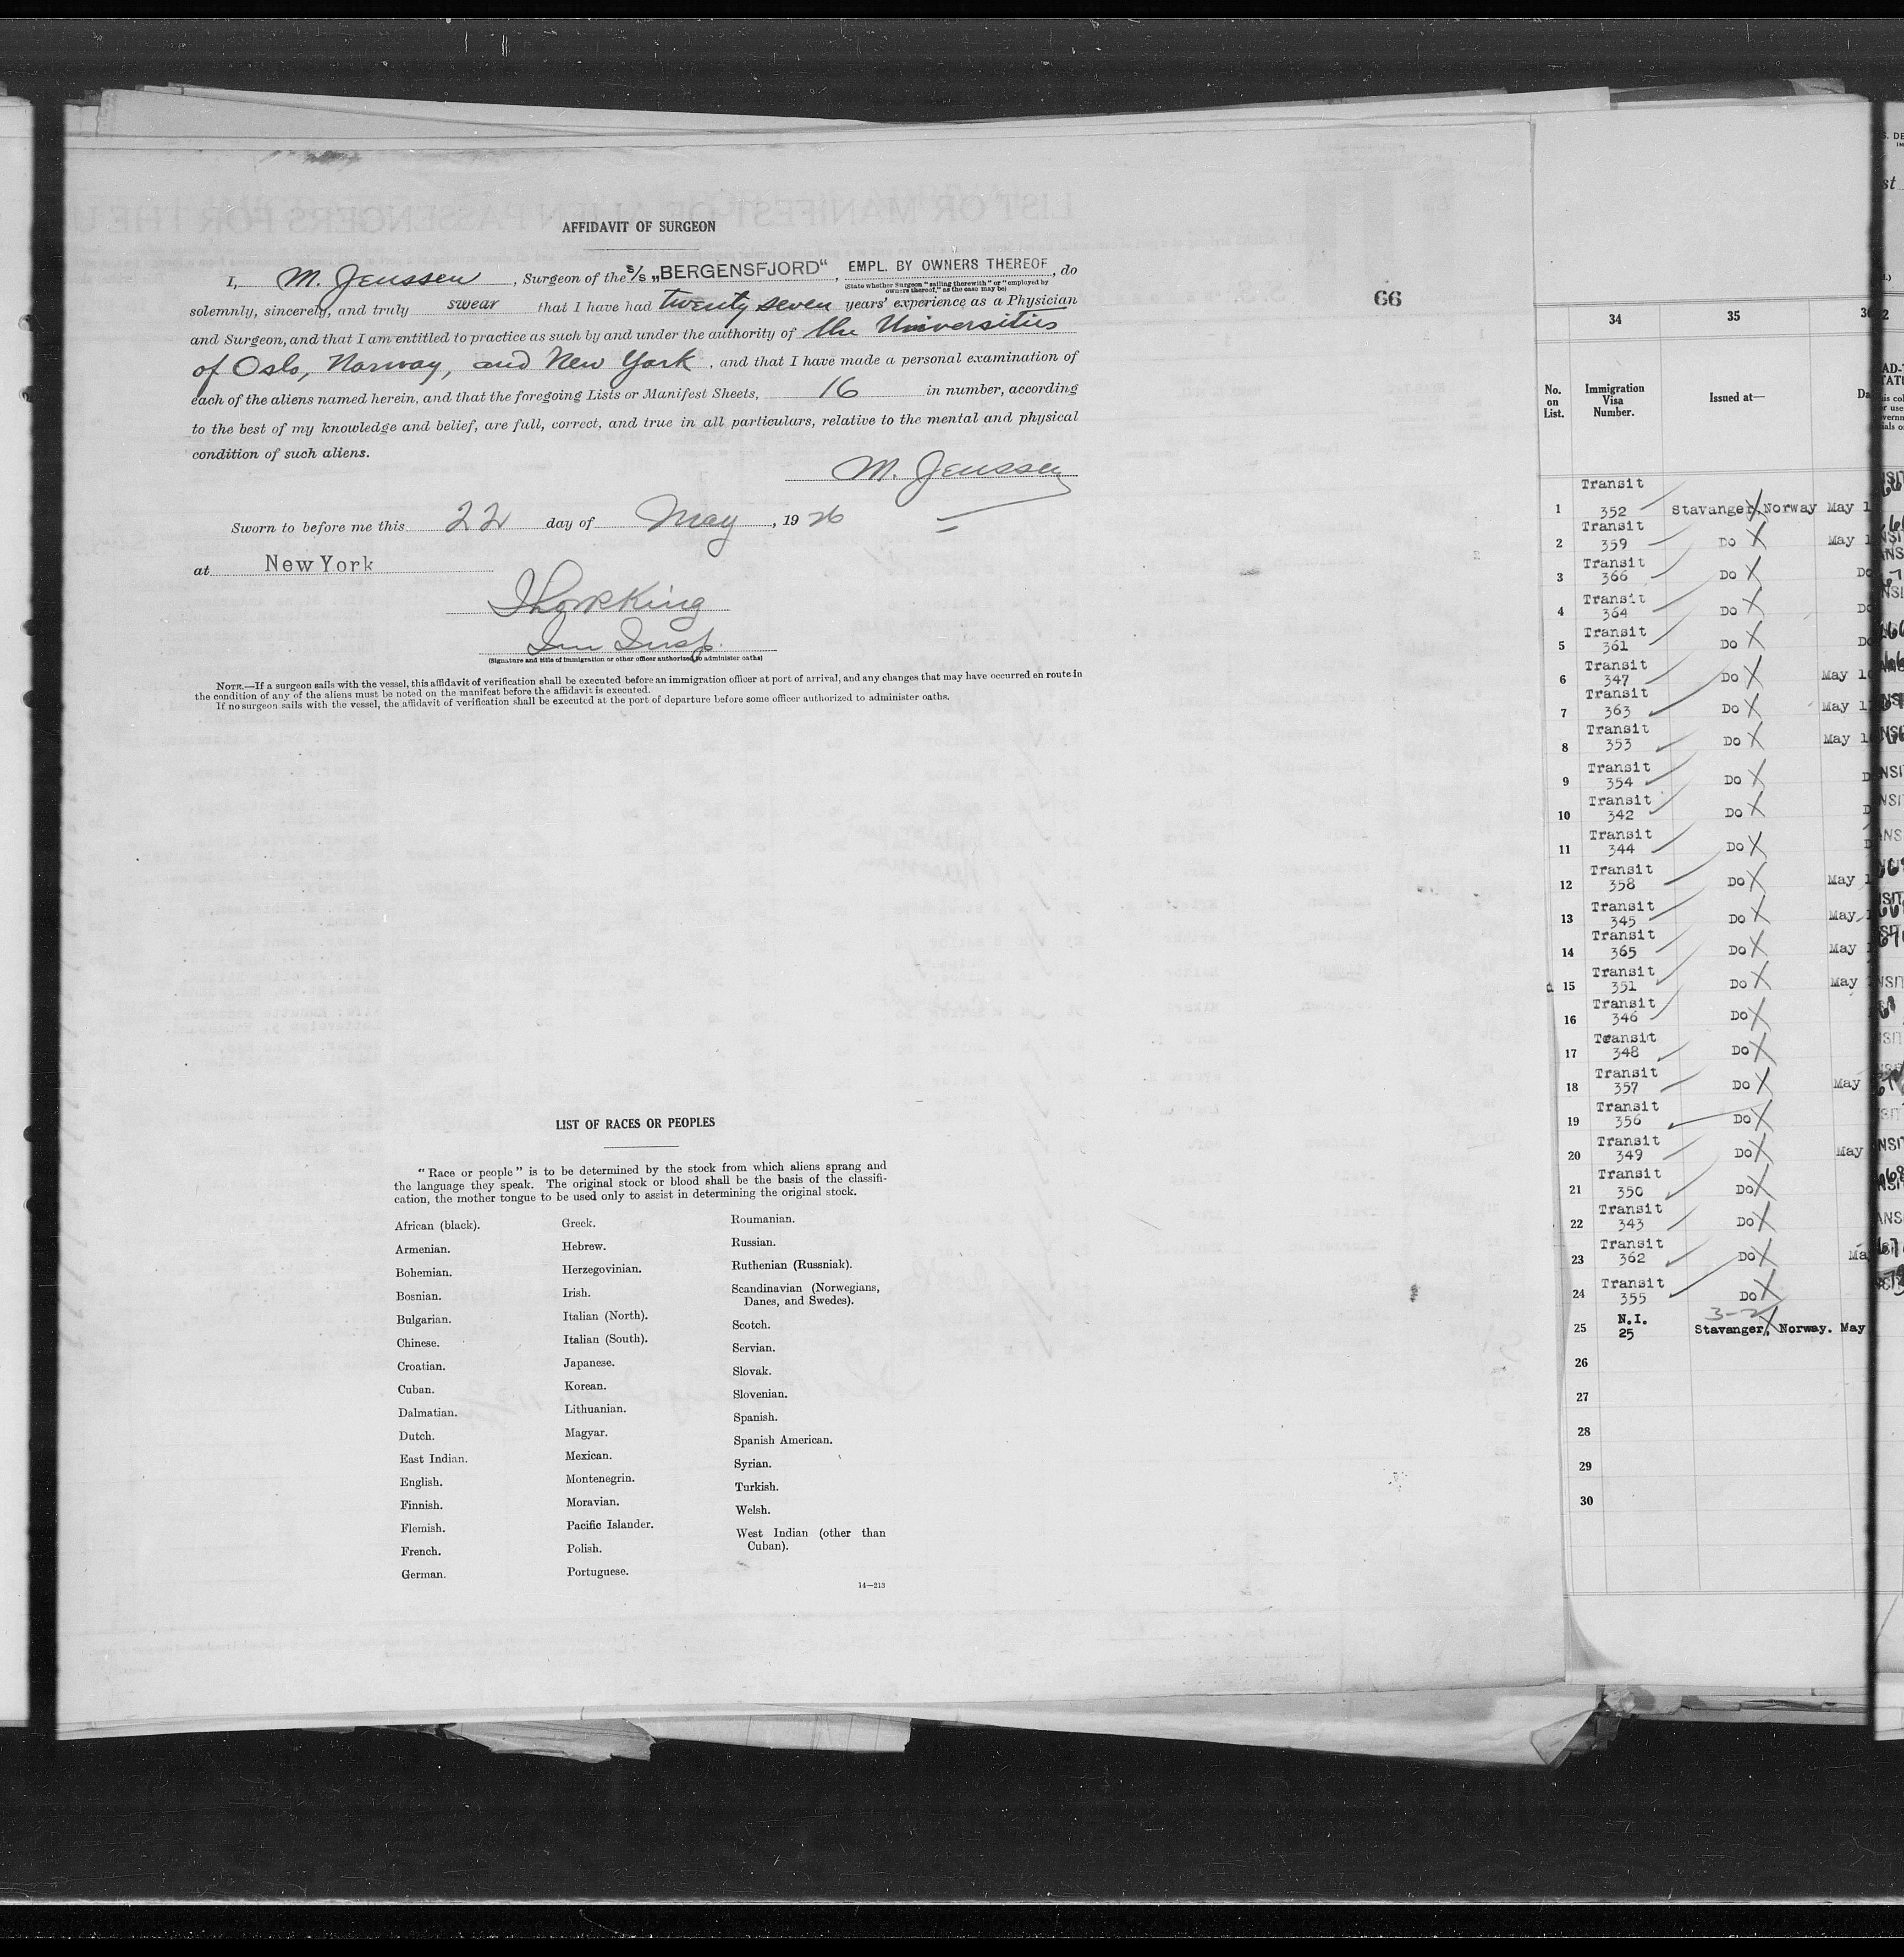 AFFIDAVIT OF SURGEON
I, M. Jenssen, Surgeon of the S/S „BERGENSFJORD“, EMPL. BY OWNERS THEREOF, do
(State whether Surgeon "sailing therewith" or "employed by
owners thereof," as the case may be)
solemnly, sincerely, and truly swear that I have had twenty seven years' experience as a Physician
and Surgeon, and that I am entitled to practice as such by and under the authority of the Universities
of Oslo, Norway, and New York, and that I have made a personal examination of
each of the aliens named herein, and that the foregoing Lists or Manifest Sheets, 16 in number, according
to the best of my knowledge and belief, are full, correct, and true in all particulars, relative to the mental and physical
condition of such aliens.
M. Jenssen
Sworn to before me this 22 day of May, 1926
at New York
King
Im Insp.
(Signature and title of immigration or other officer authorized to administer oaths)
NOTE.—If a surgeon sails with the vessel, this affidavit of verification shall be executed before an immigration officer at port of arrival, and any changes that may have occurred en route in
the condition of any of the aliens must be noted on the manifest before the affidavit is executed.
If no surgeon sails with the vessel, the affidavit of verification shall be executed at the port of departure before some officer authorized to administer oaths.
66
LIST OF RACES OR PEOPLES
"Race or people" is to be determined by the stock from which aliens sprang and
the language they speak. The original stock or blood shall be the basis of the classifi-
cation, the mother tongue to be used only to assist in determining the original stock.
African (black).
Armenian.
Bohemian.
Bosnian.
Bulgarian.
Chinese.
Croatian.
Cuban.
Dalmatian.
Dutch.
East Indian.
English.
Finnish.
Flemish.
French.
German.
Greek.
Hebrew.
Herzegovinian.
Irish.
Italian (North).
Italian (South).
Japanese.
Korean.
Lithuanian.
Magyar.
Mexican.
Montenegrin.
Moravian.
Pacific Islander.
Polish.
Portuguese.
Roumanian.
Russian.
Ruthenian (Russniak).
Scandinavian (Norwegians,
Danes, and Swedes).
Scotch.
Servian.
Slovak.
Slovenian.
Spanish.
Spanish American.
Syrian.
Turkish.
Welsh.
West Indian (other than
Cuban).
14—213
34 35
No. on List. Immigration Visa Number. Issued at—
1 Transit 352 Stavanger, Norway May
2 Transit 359 Do May
3 Transit 366 Do
4 Transit 364 Do
5 Transit 361 Do
6 Transit 347 Do May
7 Transit 363 Do May
8 Transit 353 Do May
9 Transit 354 Do
10 Transit 342 Do
11 Transit 344 Do
12 Transit 358 Do May
13 Transit 345 Do May
14 Transit 365 Do May
15 Transit 351 Do May
16 Transit 346 Do
17 Transit 348 Do
18 Transit 357 Do May
19 Transit 356 Do
20 Transit 349 Do May
21 Transit 350 Do
22 Transit 343 Do
23 Transit 362 Do
24 Transit 355 Do
3-2
25 N.I. 25 Stavanger, Norway. May
26
27
28
29
30